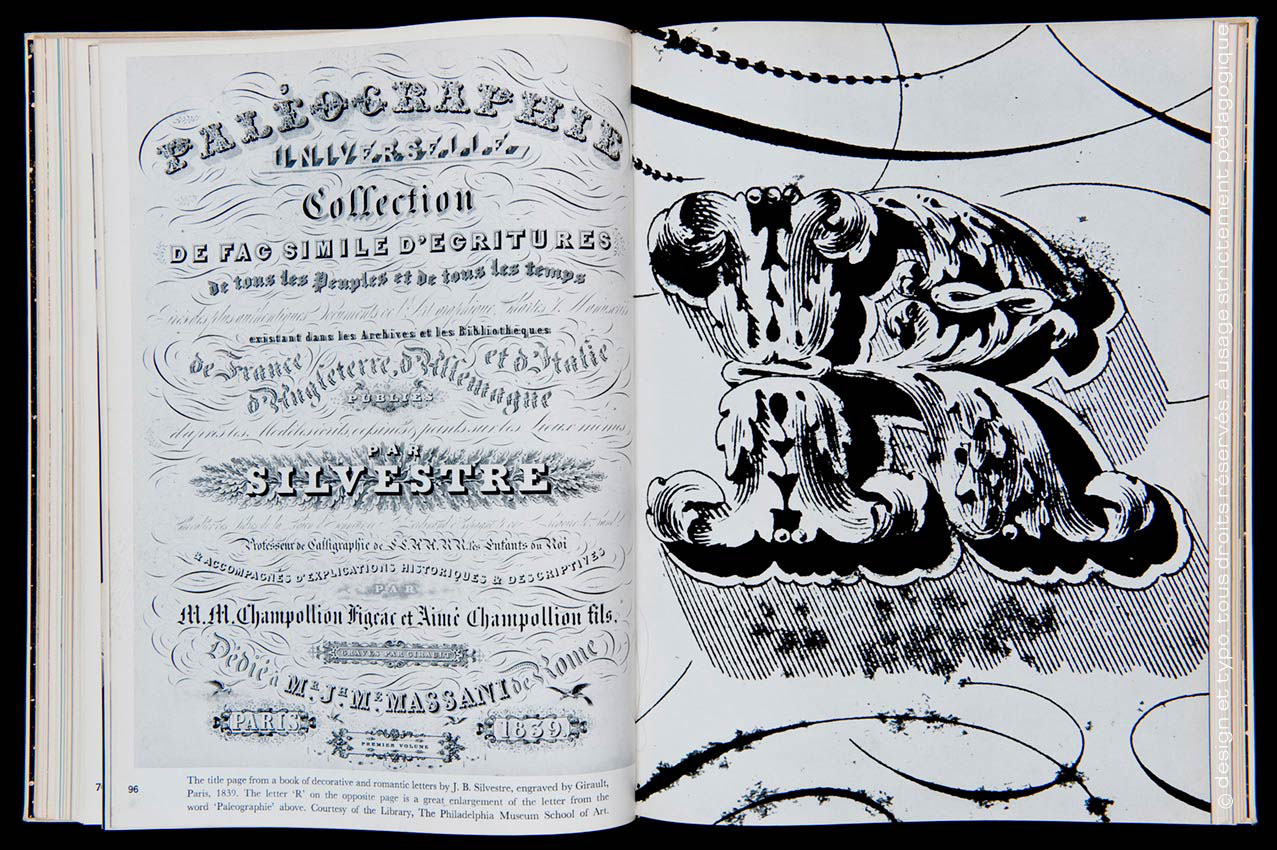 PALÉOGRAPHIE
UNIVERSELLE.
Collection
DE FAC SIMILE D'ECRITURES
de tous les Peuples et de tous les temps
existant dans les Archives et les Bibliothèques
de France et d'Italie
d'Angleterre, d'Allemagne
PUBLIÉS
PAR
SILVESTRE
Professeur de Calligraphie de les Enfants du Roi
& ACCOMPAGNÉS D'EXPLICATIONS HISTORIQUES & DESCRIPTIVES
PAR
M.M. Champollion Figeac et Aimé Champollion fils.
GRAVÉS PAR GIRAULT
Dédié à Mr. Jh. Me. MASSANI de Rome
PARIS
1839.
PREMIER VOLUME
The title page from a book of decorative and romantic letters by J. B. Silvestre, engraved by Girault,
Paris, 1839. The letter 'R' on the opposite page is a great enlargement of the letter from the
word 'Paleographie' above. Courtesy of the Library, The Philadelphia Museum School of Art.
96
R
© design et typo. tous droits réservés, à usage strictement pédagogique